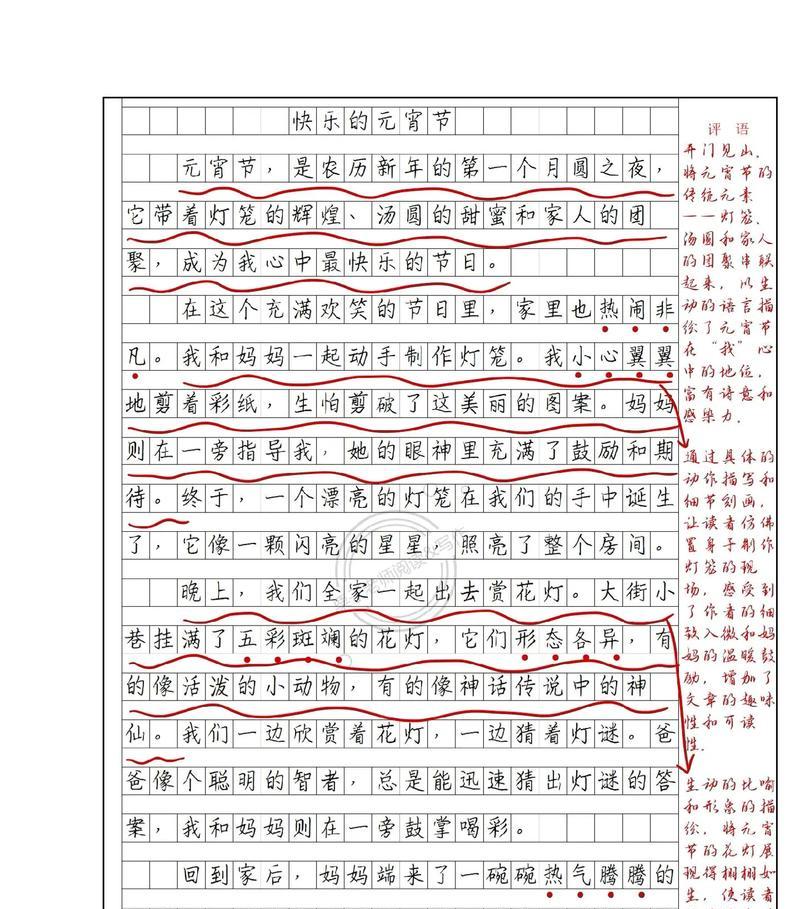 快乐的元宵节
元宵节，是农历新年的第一个月圆之夜，
它带着灯笼的辉煌、汤圆的甜蜜和家人的团
聚，成为我心中最快乐的节日。
在这个充满欢笑的节日里，家里也热闹非
凡。我和妈妈一起动手制作灯笼。我小心翼翼
地剪着彩纸，生怕剪破了这美丽的图案。妈妈
则在一旁指导我，她的眼神里充满了鼓励和期
待。终于，一个漂亮的灯笼在我们的手中诞生
了，它像一颗闪亮的星星，照亮了整个房间。
晚上，我们全家一起出去赏花灯。大街小
巷挂满了五彩斑斓的花灯，它们形态各异，有
的像活泼的小动物，有的像神话传说中的神
仙。我们一边欣赏着花灯，一边猜着灯谜。爸
爸像个聪明的智者，总是能迅速猜出灯谜的答
案，我和妈妈则在一旁鼓掌喝彩。
回到家后，妈妈端来了一碗碗热气腾腾的
评语
开门见山，
将元宵节的
传统元素
——灯笼、
汤圆和家人
的团聚串联
起来，以生
动的语言描
绘了元宵节
在“我”心
中的地位，
富有诗意和
感染力。
通过具体的
动作描写和
细节刻画，
让读者仿佛
置身于制作
灯笼的现
场，感受到
了作者的细
致入微和妈
妈的温暖鼓
励，增加了
文章的趣味
性和可读
性。
生动的比喻
和形象的描
绘，将元宵
节的花灯展
现得栩栩如
生，使读者